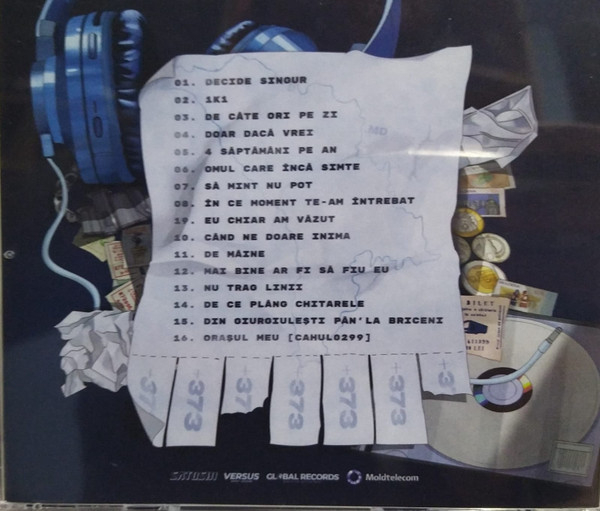 01. DECIDE SINGUR
02. 1K1
03. DE CÂTE ORI PE ZI
04. DOAR DACĂ VREI
05. 4 SĂPTĂMÂNI PE AN
06. OMUL CARE ÎNCĂ SIMTE
07. SĂ MINT NU POT
08. ÎN CE MOMENT TE-AM ÎNTREBAT
19. EU CHIAR AM VĂZUT
10. CÂND NE DOARE INIMA
11. DE MÂINE
12. MAI BINE AR FI SĂ FIU EU
13. NU TRAG LINII
14. DE CE PLÂNG CHITARELE
15. DIN GIURGIULEȘTI PÂN'LA BRICENI
16. ORAȘUL MEU [CAHUL0299]
MD
BILET
+37
+373
+37
+373
+373
+373
+3
SATOSHI VERSUS GLOBAL RECORDS Moldtelecom